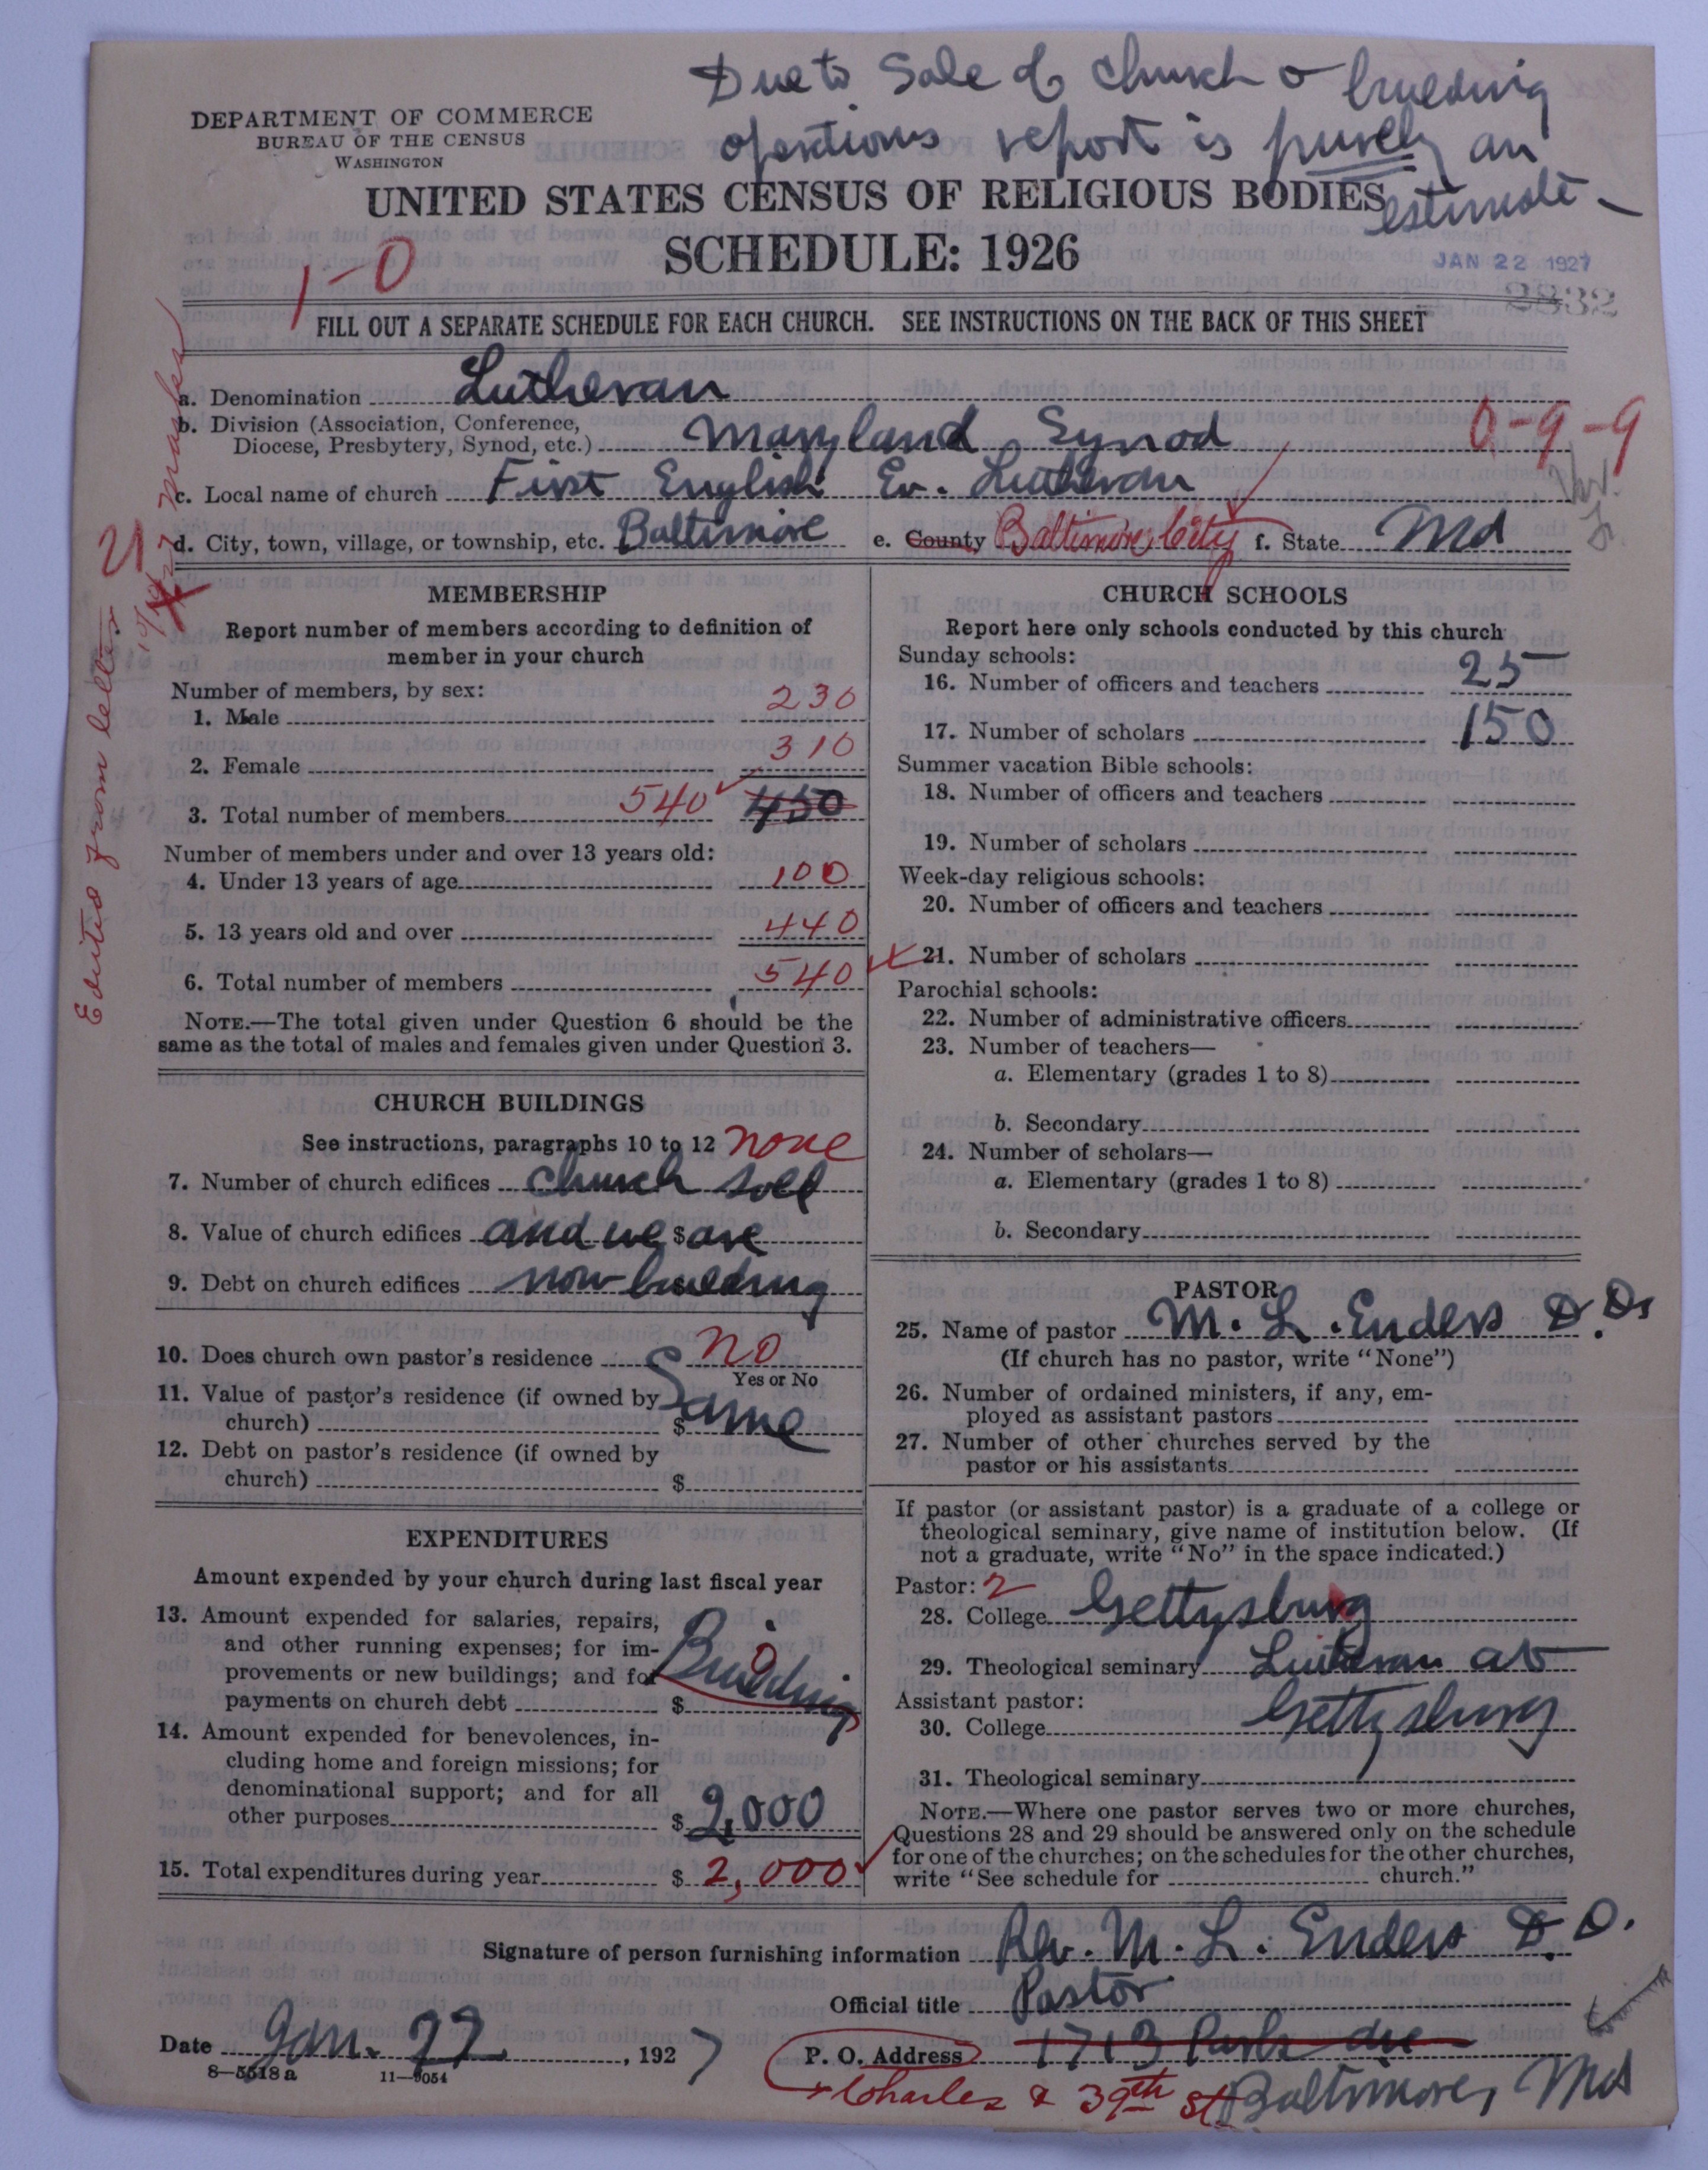 Due to Sale of church & building
operations report is purely an
estimate -
DEPARTMENT OF COMMERCE
BUREAU OF THE CENSUS
WASHINGTON
UNITED STATES CENSUS OF RELIGIOUS BODIES
SCHEDULE: 1926
1-0
JAN 22 1927
2832
FILL OUT A SEPARATE SCHEDULE FOR EACH CHURCH. SEE INSTRUCTIONS ON THE BACK OF THIS SHEET
a. Denomination Lutheran
b. Division (Association, Conference,
Diocese, Presbytery, Synod, etc.) Maryland Synod
0-9-9
c. Local name of church First English Ev. Lutheran
d. City, town, village, or township, etc. Baltimore e. County Baltimore City f. State Md
Edited from letter
MEMBERSHIP
Report number of members according to definition of
member in your church
Number of members, by sex:
1. Male 230
2. Female 310
3. Total number of members 540 450
Number of members under and over 13 years old:
4. Under 13 years of age 100
5. 13 years old and over 440
6. Total number of members 540
NOTE.—The total given under Question 6 should be the
same as the total of males and females given under Question 3.
CHURCH BUILDINGS
See instructions, paragraphs 10 to 12 none
7. Number of church edifices church sold
8. Value of church edifices and we $ are
9. Debt on church edifices now building
10. Does church own pastor's residence no
Yes or No
11. Value of pastor's residence (if owned by
church) $ Same
12. Debt on pastor's residence (if owned by
church) $
EXPENDITURES
Amount expended by your church during last fiscal year
13. Amount expended for salaries, repairs,
and other running expenses; for im-
provements or new buildings; and for
payments on church debt $ Building
14. Amount expended for benevolences, in-
cluding home and foreign missions; for
denominational support; and for all
other purposes $ 2,000
15. Total expenditures during year $ 2,000
CHURCH SCHOOLS
Report here only schools conducted by this church
Sunday schools:
16. Number of officers and teachers 25
17. Number of scholars 150
Summer vacation Bible schools:
18. Number of officers and teachers
19. Number of scholars
Week-day religious schools:
20. Number of officers and teachers
21. Number of scholars
Parochial schools:
22. Number of administrative officers
23. Number of teachers—
a. Elementary (grades 1 to 8)
b. Secondary
24. Number of scholars—
a. Elementary (grades 1 to 8)
b. Secondary
PASTOR
25. Name of pastor M. L. Enders D.D.
(If church has no pastor, write "None")
26. Number of ordained ministers, if any, em-
ployed as assistant pastors
27. Number of other churches served by the
pastor or his assistants
If pastor (or assistant pastor) is a graduate of a college or
theological seminary, give name of institution below. (If
not a graduate, write "No" in the space indicated.)
Pastor: 2
28. College Gettysburg
29. Theological seminary Lutheran at
Assistant pastor:
30. College Gettysburg
31. Theological seminary
NOTE.—Where one pastor serves two or more churches,
Questions 28 and 29 should be answered only on the schedule
for one of the churches; on the schedules for the other churches,
write "See schedule for church."
Signature of person furnishing information Rev. M. L. Enders D.D.
Official title Pastor
Date Jan. 22, 1927
P. O. Address 1713 Park Ave
8—5518a 11—9054
Charles & 39th St. Baltimore, Md